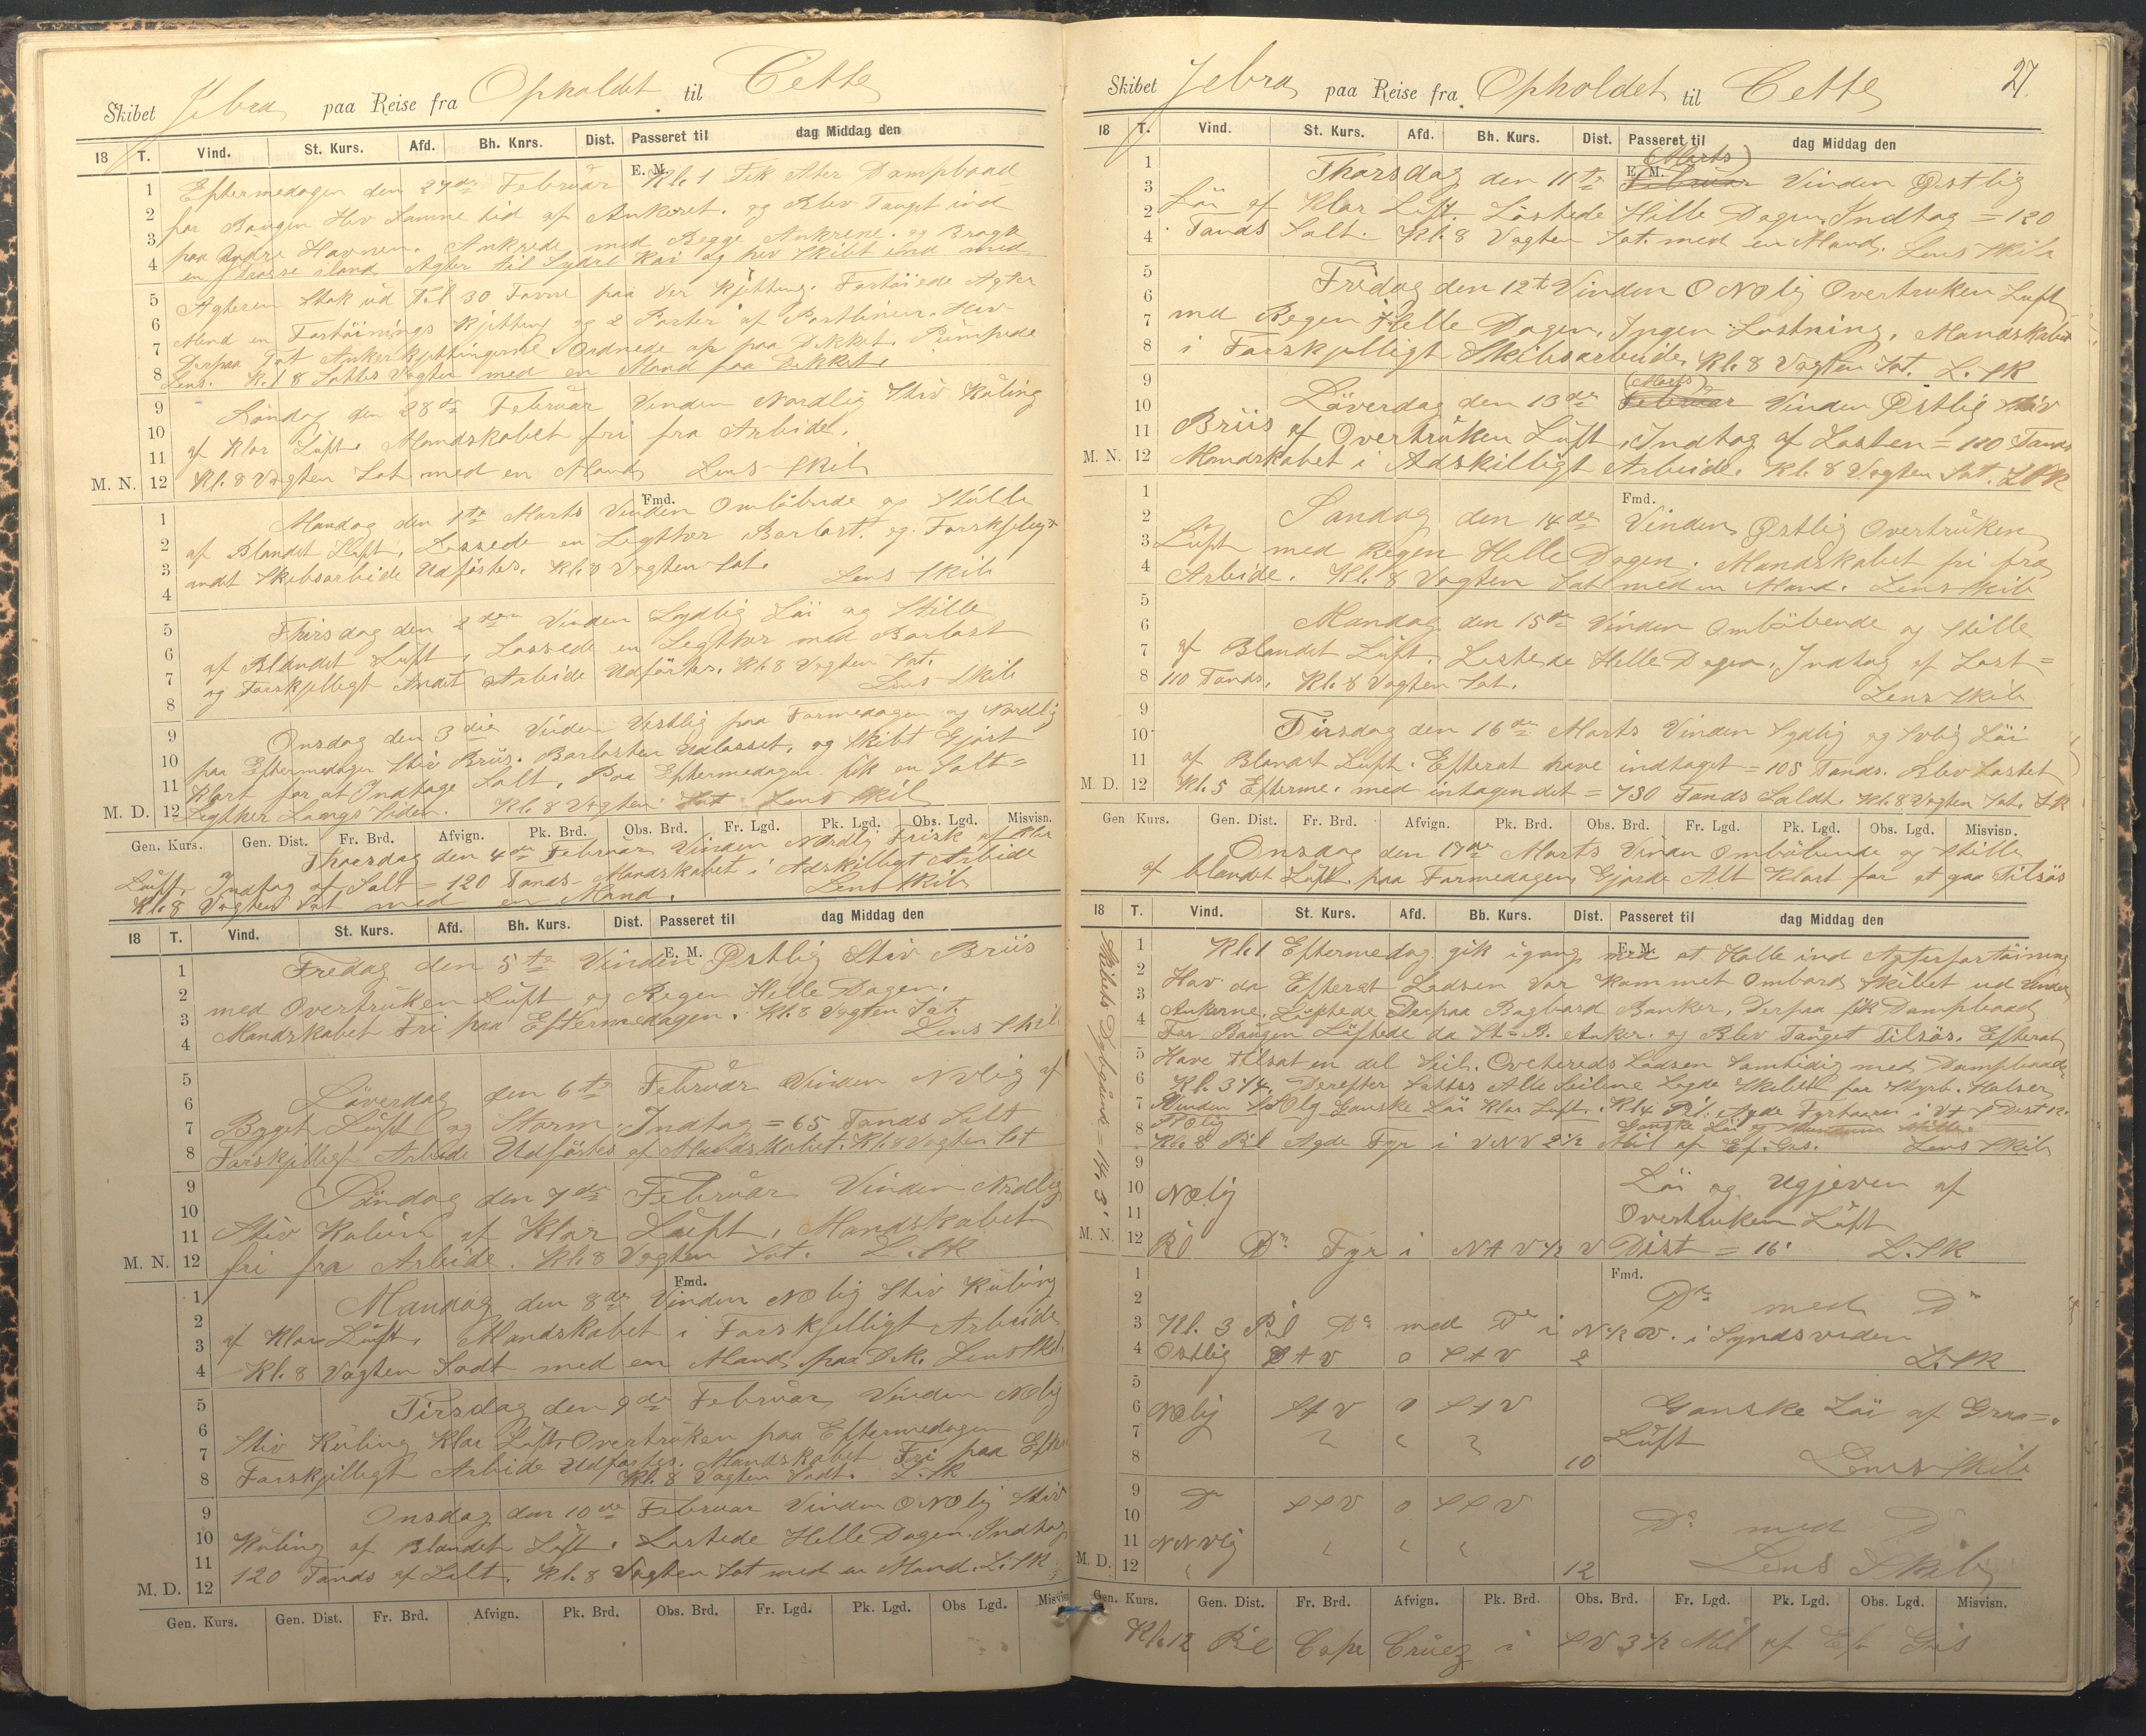 Skibet Jebra paa Reise fra Opholdet til Cette
18 T. Vind. St. Kurs. Afd. Bh. Knrs. Dist. Passeret til dag Middag den
E. M.
1 Eftermedagen den 27de Februar Kl. 1 Fik Atter Dampbaad
2 for Baugen Hev Samme tid af Ankeret. og Blev Tauget ind
3 paa Andre Havnen. Ankrede med Begge Ankrene. og Bragte
4 en Trosse iland Agter til Sydre Kai og hev Skibet ind med
5 Agteren Stak ud Til 30 Favne paa Ver Kjetting. Fortöiede Agter
6 Mend en Fortöinings Kjetting og 2 Parter af Portliner. Hev
7 Derpaa Tot Ankerkjettingerne. Ordnede op paa Dekket. Pümpede
8 Lens. Kl 8 Sattes Vagten med en Mand paa Dekket.
9 Söndag den 28de Februar Vinden Nordlig Stiv Kuling
10 af Klar Luft. Mandskabet fri fra Arbeide.
11
M. N. 12 Kl. 8 Vagten Sat med en Mand Lens Skib
Fmd.
1 Mandag den 1te Marts Vinden Omlöbende og Stille
2 af Blandet Luft, Lossede en Legtter Barlast. og Forskjeligt
3 andet Skibsarbeide Udförtes. Kl. 8 Vagten Sat.
4 Lens Skib
5 Thirsdag den 2den Vinden Sydlig Löi og Stille
6 af Blandet Luft, Lossede en Legtter med Barlast
7 og Forskjelligt Andet Arbeide Udförtes. Kl. 8 Vagten Sat.
8 Lens Skib
9 Onsdag den 3die Vinden Vestlig paa Formedagen og Nordlig
10 paa Eftermedagen Stiv Briis. Barlasten Udlosset, og Skibet Gjort
11 Klart for at Indtage Salt. Paa Eftermedagen fik en Salt=
M. D. 12 Legtter Langs Siden. Kl. 8 Vagten Sat Lens Skib
Gen. Kurs. Gen. Dist. Fr. Brd. Afvign. Pk. Brd. Obs. Brd. Fr. Lgd. Pk. Lgd. Obs. Lgd. Misvisn.
Thorsdag den 4de Februar Vinden Nordlig Frisk af Klar
Luft. Indtog af Salt = 120 Tands. Mandskabet i Adskilligt Arbeide
Kl. 8 Vagten Sat med en Mand. Lens Skib
18 T. Vind. St. Kurs. Afd. Bh. Kurs. Dist. Passeret til dag Middag den
E. M.
1 Fredag den 5te Vinden Østlig Stiv Briis
2 med Overtrüken Luft og Regen Helle Dagen.
3 Mandskabet Fri paa Eftermedagen. Kl. 8 Vagten Sat.
4 Lens Skib
5 Löverdag den 6te Februar Vinden NVlig af
6 Byget Luft og Storm. Indtog = 65 Tands Salt
7 Forskjelligt Arbeide Udförtes af Mandskabet. Kl. 8 Vagten Sat
8
9 Söndag den 7de Februar Vinden Nrdlig
10 Stiv Kuling af Klar Luft, Mandskabet
11 fri fra Arbeide. Kl. 8 Vagten Sat. L. SK
M. N. 12
Fmd.
1 Mandag den 8de Vinden NOlig Stiv Kuling
2 af Klar Luft, Mandskabet i Forskjelligt Arbeide
3 Kl. 8 Vagten Sadt med en Mand paa Dek. Lens Skb.
4
5 Tirsdag den 9de Februar Vinden NOlig
6 Stiv Kuling Klar Luft, Overtrüken paa Eftermedagen
7 Forskjelligt Arbeide Udförtes. Mandskabet Fri paa Efter
8 Kl. 8 Vagten Sadt. L. SK
9 Onsdag den 10de Februar Vinden ONOlig Stiv
10 Kuling af Blandet Luft. Lastede Helle Dagen. Indtog
11 120 Tands af Salt. Kl. 8 Vagten Sat med en Mand. L. SK
M. D. 12
Gen. Kurs. Gen. Dist. Fr. Brd. Afvign. Pk. Brd. Obs. Brd. Fr. Lgd. Pk. Lgd. Obs Lgd. Misvisn
27
Skibet Jebra paa Reise fra Opholdet til Cette
18 T. Vind. St. Kurs. Afd. Bh. Kurs. Dist. Passeret til dag Middag den
E. M. (Marts)
1 Thorsdag den 11te Februar Vinden Østlig
3 Löi af Klar Luft. Lastede Hille Dagen, Indtog = 120
2 Tands Salt. Kl. 8 Vagten Sat. med en Mand. Lens Skib
4
5 Fredag den 12te Vinden ONOlig Overtruken Luft
6 med Regen Helle Dagen, Ingen Lastning, Mandskabet
7 i Forskjelligt Skibsarbeide. Kl. 8 Vagten Sat. L. SK
8
(Marts)
9 Löverdag den 13de Februar Vinden Østlig Stiv
10 Briis af Overtrüken Luft, Indtog af Lasten = 120 Tands
11 Mandskabet i Adskilligt Arbeide. Kl. 8 Vagten Sat. LSK
M. N. 12
Fmd.
1 Söndag den 14de Vinden Østlig Overtrüken
2 Luft med Regen Helle Dagen. Mandskabet fri fra
3 Arbeide. Kl. 8 Vagten Sat med en Mand. Lens Skib
4
5 Mandag den 15de Vinden Omlöbende og Stille
6 af Blandet Luft. Lastede Helle Dagen, Indtog af Last=
7 110 Tands, Kl. 8 Vagten Sat.
8 Lens Skib
9 Tirsdag den 16de Marts Vinden Sydlig og SVlig Löi
10 af Blandet Luft. Efterat have indtaget = 105 Tands. Blev Lastet
11 Kl. 5 Efterme. med intagendet = 730 Tands Saldt. Kl. 8 Vagten Sat. L. SK
M. D. 12
Gen Kurs. Gen. Dist. Fr. Brd. Afvign. Pk. Brd. Obs. Brd. Fr. Lgd. Pk. Lgd. Obs. Lgd. Misvisn.
Onsdag den 17de Marts Vinden Omlöbende og Stille
af blandet Luft. paa Formedagen Gjorde Alt Klart for at gaa Tilsös
18 T. Vind. St. Kurs. Afd. Bb. Kurs. Dist. Passeret til dag Middag den
E. M.
Skibets Dybgaaende = 14, 3'
1 Kl. 1 Eftermedag gik igang med at Halle ind Agterfortöining
2 Hav da Efterat Lodsen Var Kommet Ombord Skibet ud Under
3 Ankerne. Löftede Derpaa Bagbord Banker, Derpaa fik Dampbaad
4 For Baugen Löftede da St=B. Anker. og Blev Tauget Tilsös. Efterat
5 Have tilsat en del Seil. Lodsen Samtidig med Dampbaaden
6 Kl. 3 3/4, Derefter Sattes Alle Seilene Lagde Skibet for Styrb. Halser
7 Vinden SSOlg Ganske Löi Klar Luft. Kl 4 Pil. Agde Fyrtaarn i V t S Dist 12.
8 Ganske Löi og Stille.
Kl. 8 Pil Agde Fyr i VNV 2 1/2 Mil af Ef. Gis. Lens Skib
9
10 NOlig Löi og Ugjeven af
11 Overtruken Luft
M. N. 12 Pil Do Fyr i N t V 1/2 V Dist = 16' L. SK
Fmd.
1
2 Do med Do
3 Kl. 3 Pil Do med Do i N 1/2 V. i Syndsveden
4 Ostlig S t V 0 S t V 2 L. SK
5
6 NOlig S t V 0 S t V Ganske Löi af Graa=
7 Luft
8 10 Lens Skib
9 Do S S V 0 S S V
10 Do med Do
11 NNVlig
M. D. 12 12 Lens Skib
Gen. Kurs. Gen. Dist. Fr. Brd. Afvign. Pk. Brd. Obs. Brd. Fr. Lgd. Pk. Lgd. Obs. Lgd. Misvisn.
Kl. 12 Pil Cape Cruez i SV 3 1/2 Mil af Ef Gis